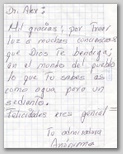 Dr. Alex:
Mil gracias por traer
luz a muchas conciencias
que Dios Te bendiga,
en el mundo del pueblo
lo que tu sabes es
como agua para un
sediento.
Felicidades eres genial
Tu admiradora
Anónima